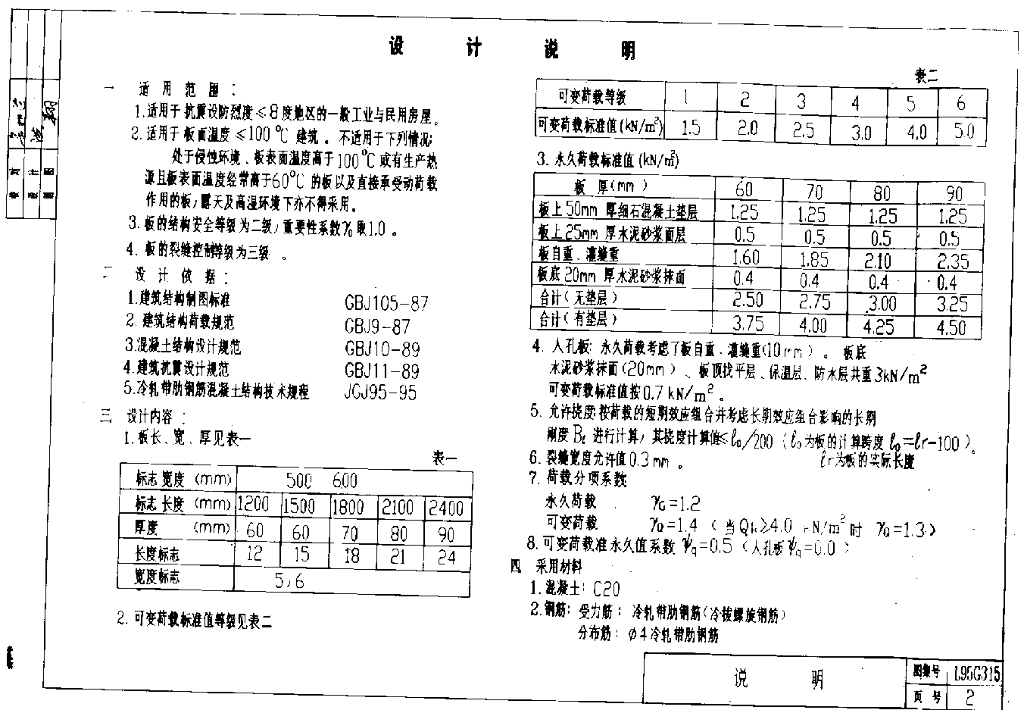 设 计 说 明
一 适 用 范 围 :
1.适用于抗震设防烈度≤8度地区的一般工业与民用房屋。
2.适用于板面温度≤100℃ 建筑。 不适用于下列情况:
处于侵蚀环境、板表面温度高于100℃或有生产热
源且板表面温度经常高于60℃的板以及直接承受动荷载
作用的板,露天及高湿环境下亦不得采用。
3.板的结构安全等级为二级,重要性系数γ₀取1.0。
4.板的裂缝控制等级为三级 。
二 设 计 依 据 :
1.建筑结构制图标准 GBJ105-87
2.建筑结构荷载规范 GBJ9-87
3.混凝土结构设计规范 GBJ10-89
4.建筑抗震设计规范 GBJ11-89
5.冷轧带肋钢筋混凝土结构技术规程 JGJ95-95
三 设计内容:
1.板长、宽、厚见表一
表一
标志宽度 (mm) 500 600
标志长度 (mm) 1200 1500 1800 2100 2400
厚度 (mm) 60 60 70 80 90
长度标志 12 15 18 21 24
宽度标志 5,6
2.可变荷载标准值等级见表二
表二
可变荷载等级 1 2 3 4 5 6
可变荷载标准值(kN/m²) 1.5 2.0 2.5 3.0 4.0 5.0
3.永久荷载标准值(kN/m²)
板 厚(mm) 60 70 80 90
板上50mm 厚细石混凝土垫层 1.25 1.25 1.25 1.25
板上25mm 厚水泥砂浆面层 0.5 0.5 0.5 0.5
板自重、灌缝重 1.60 1.85 2.10 2.35
板底20mm 厚水泥砂浆抹面 0.4 0.4 0.4 0.4
合计(无垫层) 2.50 2.75 3.00 3.25
合计(有垫层) 3.75 4.00 4.25 4.50
4.人孔板:永久荷载考虑了板自重、灌缝重(10mm)。 板底
水泥砂浆抹面(20mm)、板顶找平层、保温层、防水层共重3kN/m²
可变荷载标准值按0.7kN/m²。
5.允许挠度:按荷载的短期效应组合并考虑长期效应组合影响的长期
刚度Bℓ进行计算,其挠度计算值≤ℓ₀/200 (ℓ₀为板的计算跨度ℓ₀=ℓr-100)。
ℓr为板的实际长度
6.裂缝宽度允许值0.3mm。
7.荷载分项系数
永久荷载 γG=1.2
可变荷载 γQ=1.4 (当Qk≥4.0 kN/m²时 γQ=1.3)
8.可变荷载准永久值系数ψq=0.5(人孔板ψq=0.0)
四 采用材料
1.混凝土:C20
2.钢筋:受力筋:冷轧带肋钢筋(冷拔螺旋钢筋)
分布筋:φ4冷轧带肋钢筋
说 明
图集号 L95G315
页 号 2
设 计
制 图